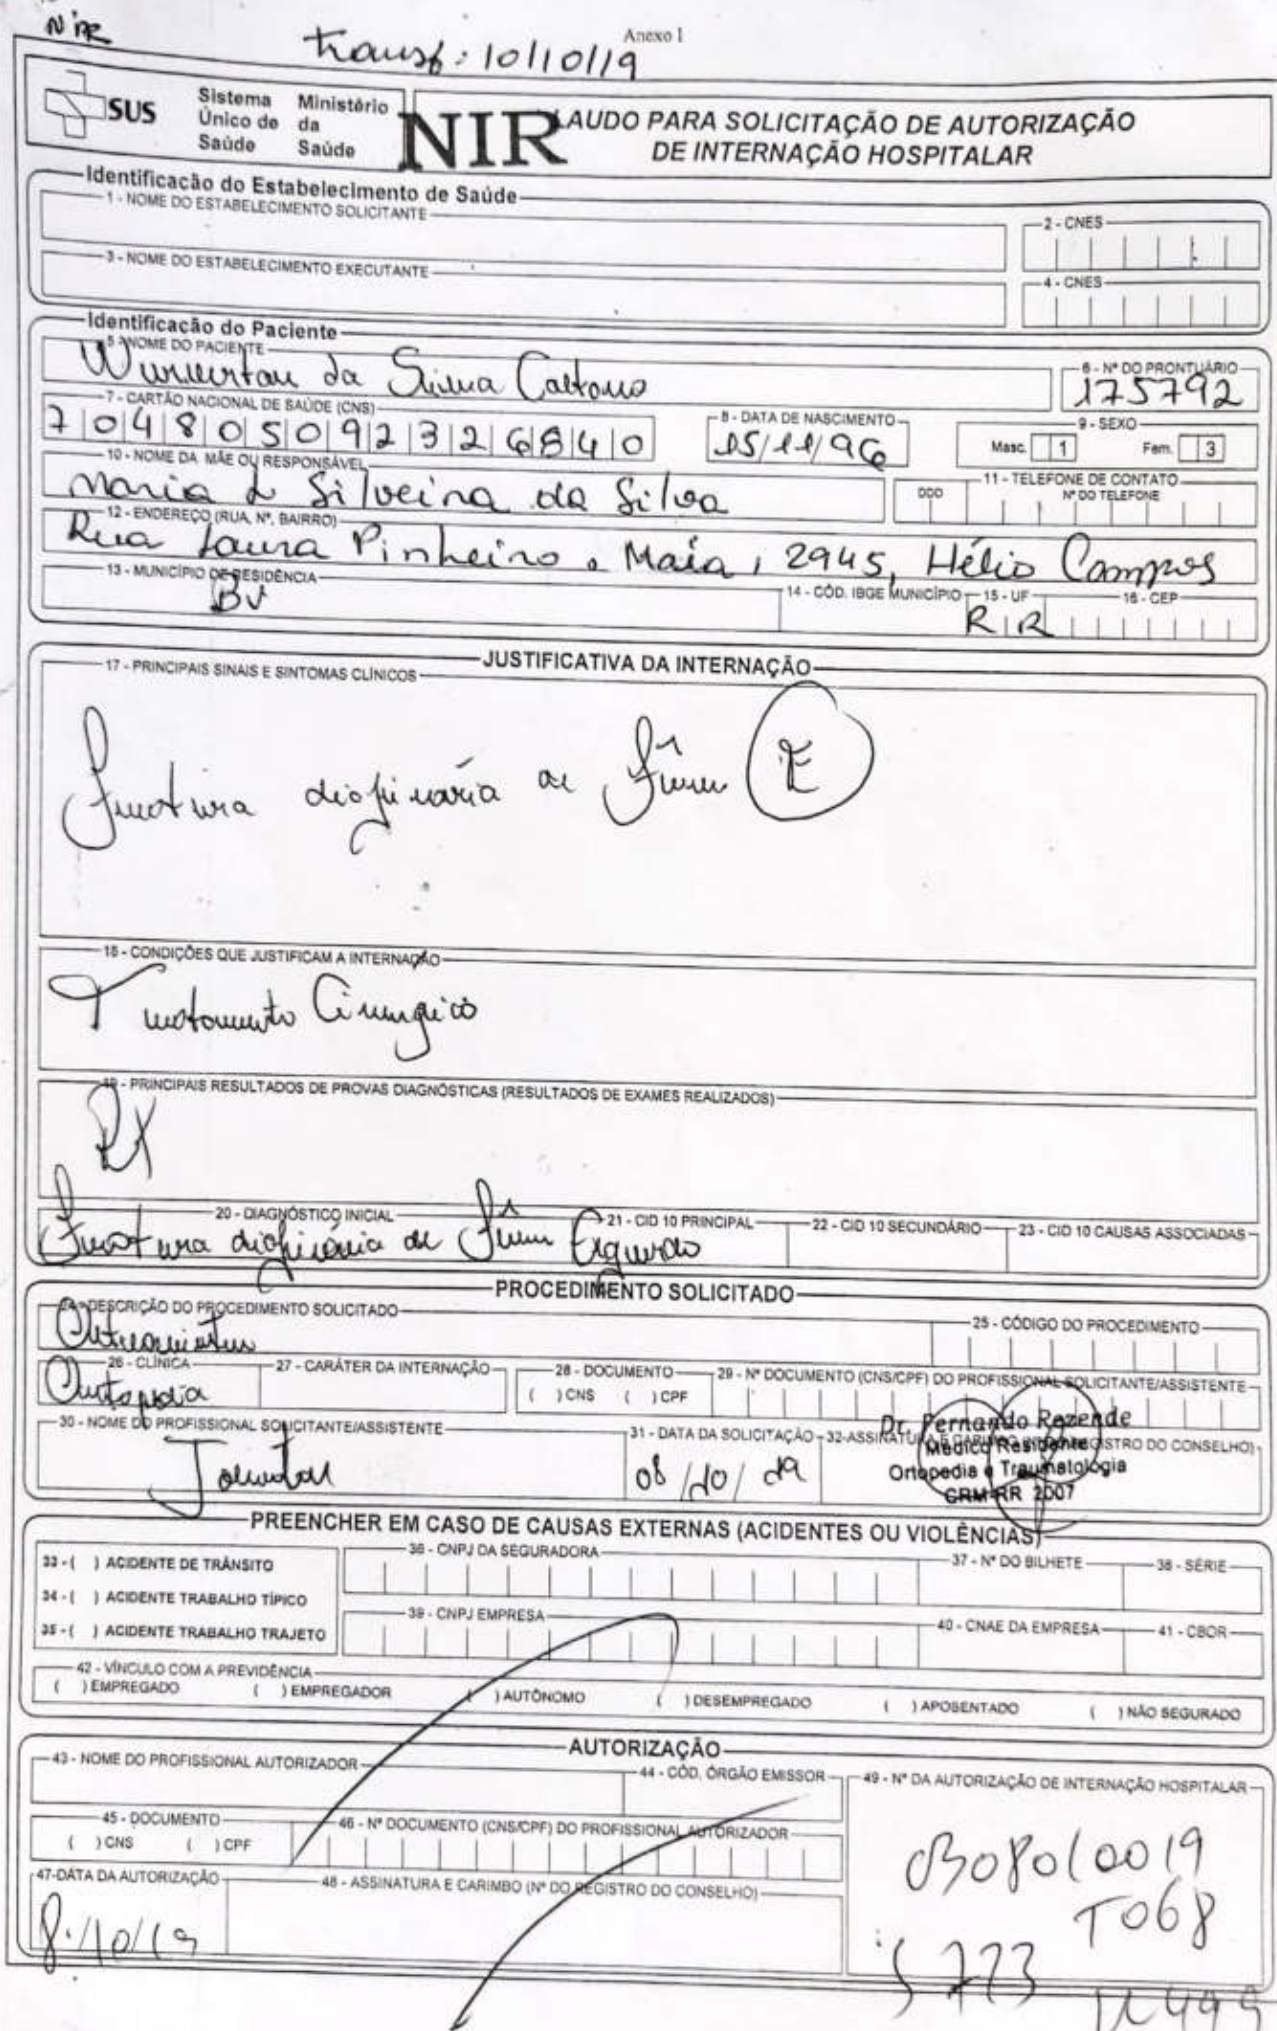 NIR
Anexo I
Transf: 10/10/19
SUS
Sistema Único de Saúde
Ministério da Saúde
NIR
LAUDO PARA SOLICITAÇÃO DE AUTORIZAÇÃO
DE INTERNAÇÃO HOSPITALAR
Identificação do Estabelecimento de Saúde
1 - NOME DO ESTABELECIMENTO SOLICITANTE
2 - CNES
3 - NOME DO ESTABELECIMENTO EXECUTANTE
4 - CNES
Identificação do Paciente
5 - NOME DO PACIENTE
da Silva Caetano
6 - Nº DO PRONTUÁRIO
175792
7 - CARTÃO NACIONAL DE SAÚDE (CNS)
704805092326840
8 - DATA DE NASCIMENTO
15/11/96
9 - SEXO
Masc. 1 Fem. 3
10 - NOME DA MÃE OU RESPONSÁVEL
Maria L Silveira da Silva
11 - TELEFONE DE CONTATO
DDD Nº DO TELEFONE
12 - ENDEREÇO (RUA, Nº, BAIRRO)
Rua Laura Pinheiro Maia, 2945, Hélio Campos
13 - MUNICÍPIO DE RESIDÊNCIA
BV
14 - CÓD. IBGE MUNICÍPIO
15 - UF
RR
16 - CEP
JUSTIFICATIVA DA INTERNAÇÃO
17 - PRINCIPAIS SINAIS E SINTOMAS CLÍNICOS
Fratura diafisária de Fêmur E
18 - CONDIÇÕES QUE JUSTIFICAM A INTERNAÇÃO
Tratamento Cirúrgico
19 - PRINCIPAIS RESULTADOS DE PROVAS DIAGNÓSTICAS (RESULTADOS DE EXAMES REALIZADOS)
RX
20 - DIAGNÓSTICO INICIAL
21 - CID 10 PRINCIPAL
22 - CID 10 SECUNDÁRIO
23 - CID 10 CAUSAS ASSOCIADAS
Fratura diafisária de Fêmur Esquerdo
PROCEDIMENTO SOLICITADO
24 - DESCRIÇÃO DO PROCEDIMENTO SOLICITADO
25 - CÓDIGO DO PROCEDIMENTO
26 - CLÍNICA
Ortopedia
27 - CARÁTER DA INTERNAÇÃO
28 - DOCUMENTO
( ) CNS ( ) CPF
29 - Nº DOCUMENTO (CNS/CPF) DO PROFISSIONAL SOLICITANTE/ASSISTENTE
30 - NOME DO PROFISSIONAL SOLICITANTE/ASSISTENTE
31 - DATA DA SOLICITAÇÃO
08/10/19
32-ASSINATURA E CARIMBO REGISTRO DO CONSELHO)
Dr. Fernando Rezende
Médico Residente
Ortopedia e Traumatologia
CRM-RR 2007
PREENCHER EM CASO DE CAUSAS EXTERNAS (ACIDENTES OU VIOLÊNCIAS)
33 - ( ) ACIDENTE DE TRÂNSITO
34 - ( ) ACIDENTE TRABALHO TÍPICO
35 - ( ) ACIDENTE TRABALHO TRAJETO
36 - CNPJ DA SEGURADORA
37 - Nº DO BILHETE
38 - SÉRIE
39 - CNPJ EMPRESA
40 - CNAE DA EMPRESA
41 - CBOR
42 - VÍNCULO COM A PREVIDÊNCIA
( ) EMPREGADO ( ) EMPREGADOR ( ) AUTÔNOMO ( ) DESEMPREGADO ( ) APOSENTADO ( ) NÃO SEGURADO
AUTORIZAÇÃO
43 - NOME DO PROFISSIONAL AUTORIZADOR
44 - CÓD. ÓRGÃO EMISSOR
45 - DOCUMENTO
( ) CNS ( ) CPF
46 - Nº DOCUMENTO (CNS/CPF) DO PROFISSIONAL AUTORIZADOR
47-DATA DA AUTORIZAÇÃO
8/10/19
48 - ASSINATURA E CARIMBO (Nº DO REGISTRO DO CONSELHO)
49 - Nº DA AUTORIZAÇÃO DE INTERNAÇÃO HOSPITALAR
0308010019
T068
S723